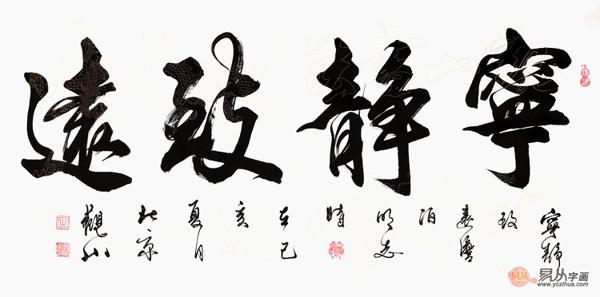 寧静致遠
寧静
致
遠澹
泊
明志
時
在己
亥
夏月
北京
觀山
易从字画
www.yczihua.com